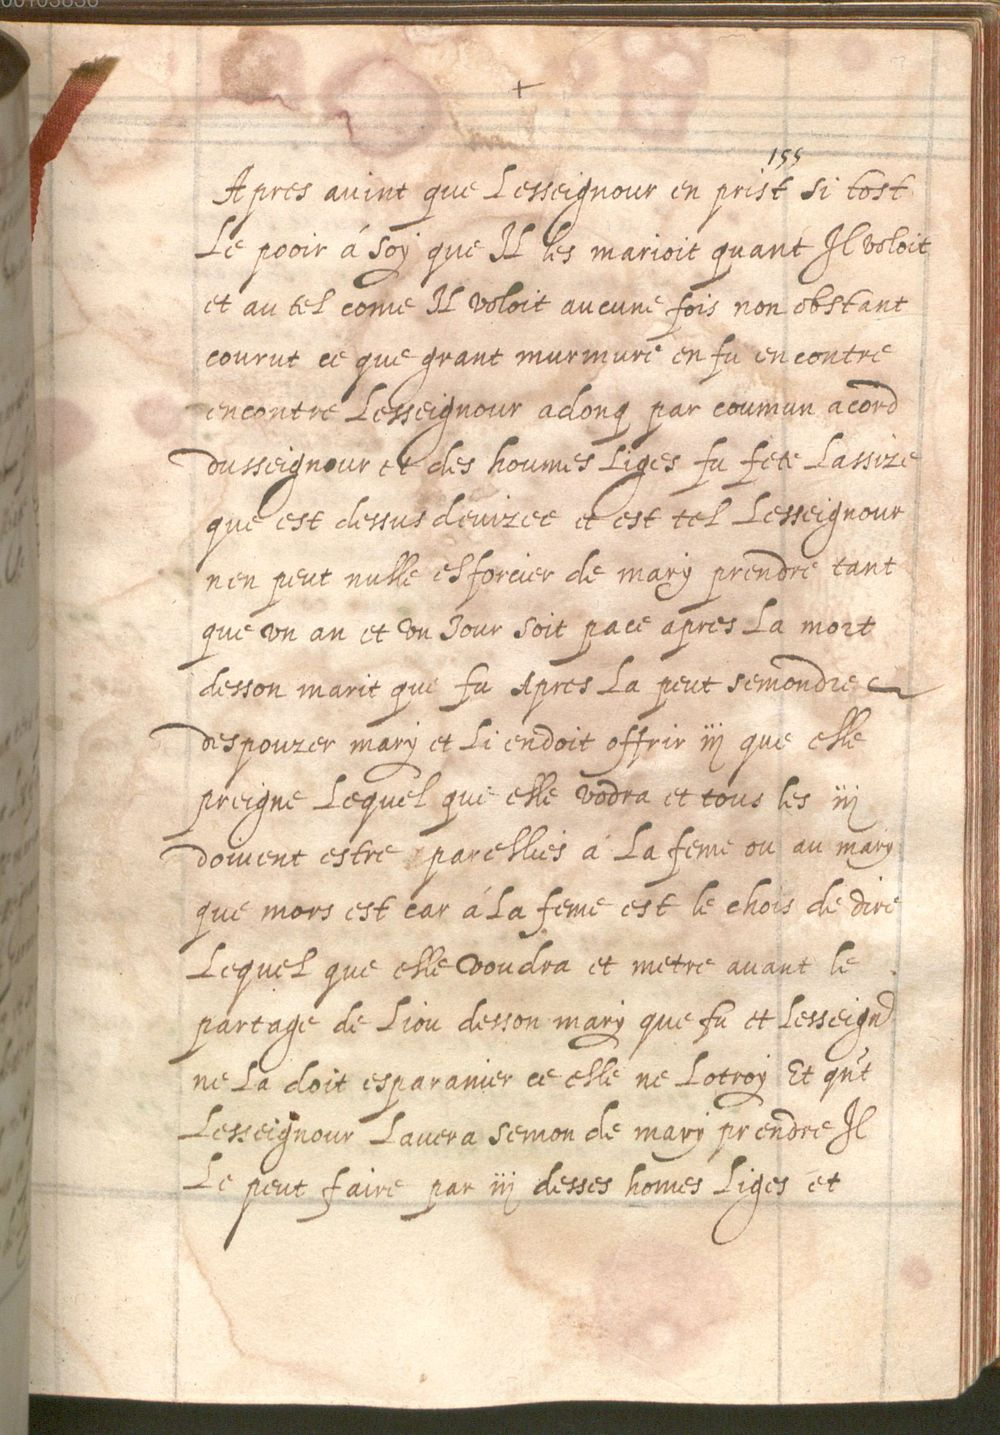 +
155
Apres auint que Lesseignour en prist si tost
Le pooir á soÿ que Il les marioit quant Il voloit
et au tel come Il voloit aucune fois non obstant
courut ce que grant murmure en fu encontre
encontre Lesseignour adonq par coumun acord
dusseignour et des houmes Liges fu fete Lassize
que est dessus deuizee et est tel Lesseignour
nen peut nulle esforcier de marÿ prendre tant
que vn an et vn Jour soit pace apres La mort
desson marit que fu Apres La peut semondre
despouzer marÿ et Li endoit offrir iij que elle
preigne Lequel que elle vodra et tous les iij
doiuent estre parellies á La feme ou au marÿ
que mors est car á La feme est le chois de dire
Lequel que elle voudra et metre auant le
partage de Liou desson marÿ que fu et Lesseignᵈ
ne La doit esparanier ce elle ne Lotroÿ Et qu't
Lesseignour Lauera semon de marÿ prendre Il
Le peut faire par iij desses homes Liges et